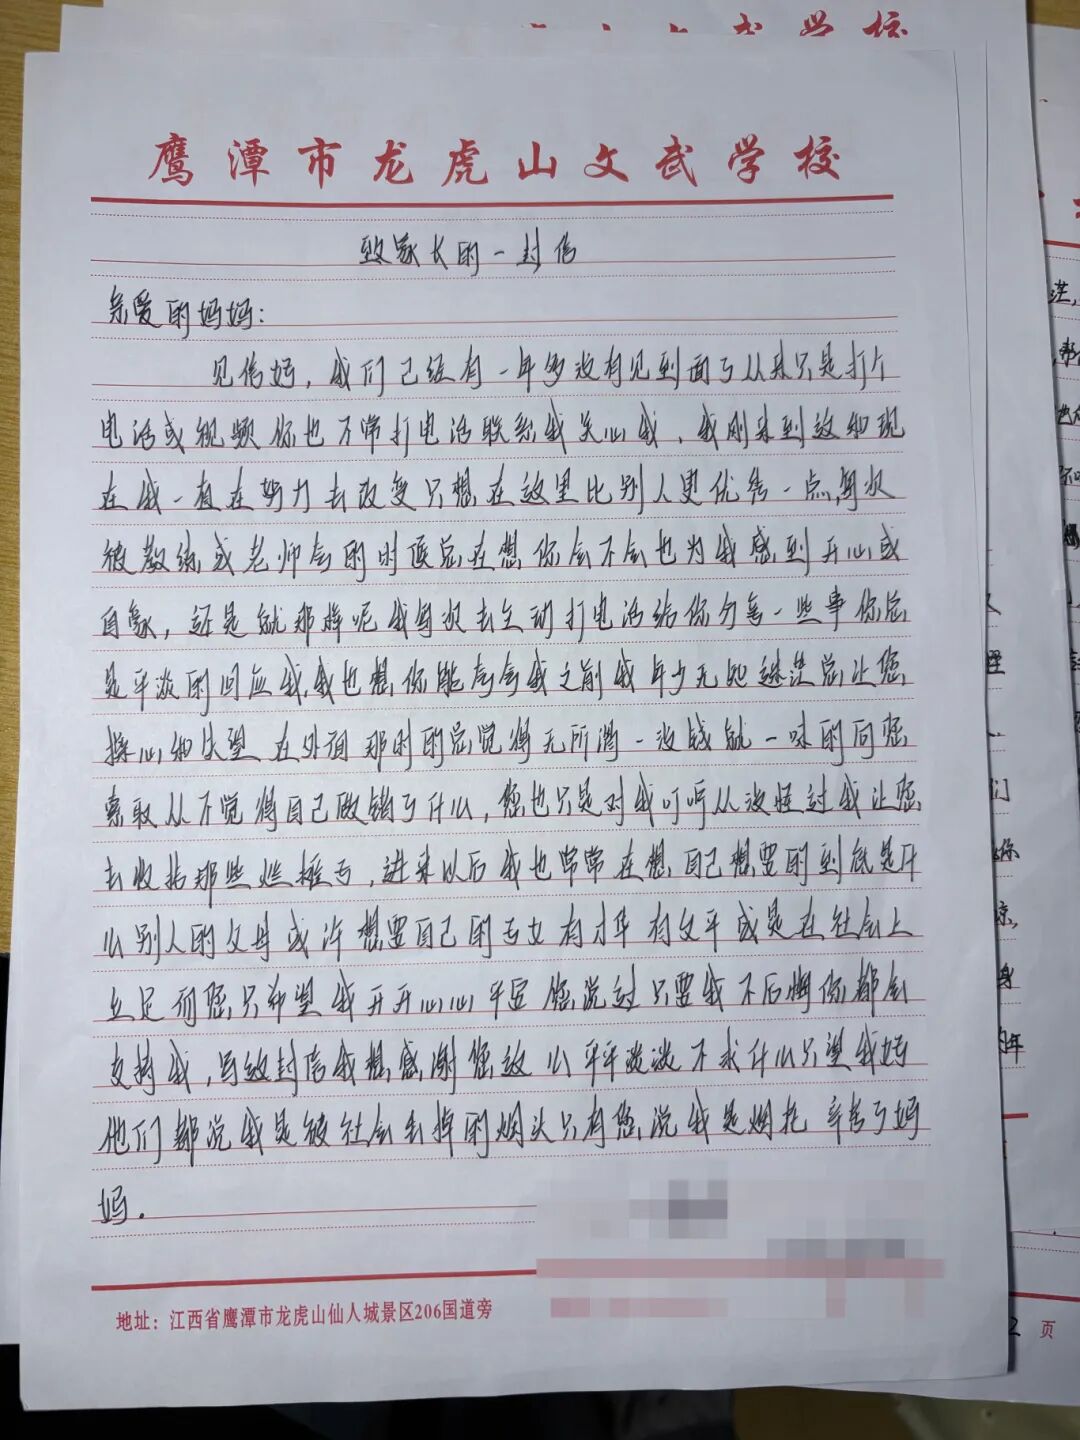 鹰潭市龙虎山文武学校
致家长的一封信
亲爱的妈妈：
见信好，我们已经有一年多没有见到面了从来只是打个
电话或视频你也不常打电话联系我关心我，我刚来到这和现
在我一直在努力去改变只想在这里比别人更优秀一点，每次
被教练或老师夸的时候总在想你会不会也为我感到开心或
自豪，还是就那样呢我每次去主动打电话给你分享一些事你总
是平淡的回应我，我也想你能夸夸我之前我年少无知迷茫总让您
操心和失望在外面那时的总觉得无所谓一没钱就一味的向您
索取从不觉得自己做错了什么，您也只是对我叮咛从没怪过我让您
去收拾那些烂摊子，进来以后我也常常在想自己想要的到底是什
么别人的父母或许想要自己的子女有才华有文平或是在社会上
立足而您只希望我开开心心平安您说过只要我不后悔你都会
支持我，写这封信我想感谢您这么平平淡淡不求什么只望我好
他们都说我是被社会丢掉的烟头只有您说我是烟花辛苦了妈
妈.
地址：江西省鹰潭市龙虎山仙人城景区206国道旁
2 页